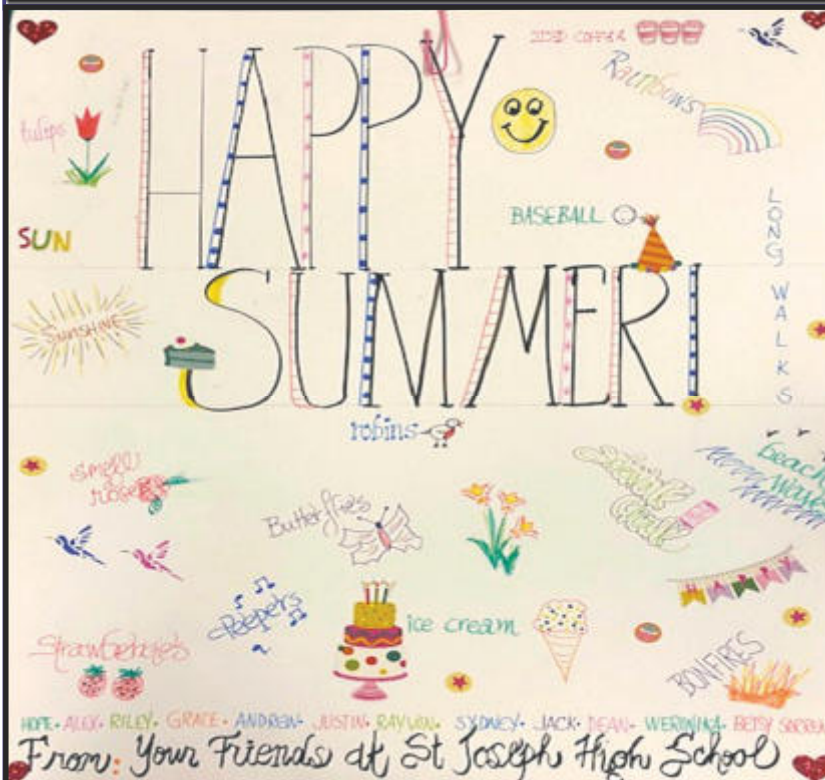 ICED COFFEE
HAPPY
Rainbows
tulips
BASEBALL
SUN
LONG WALKS
SUMMER!
SUNSHINE
robins
smell
roses
Butterflies
Sidewalk
Chalk
beach
waves
Peepers
HAPPY
ice cream
Strawberries
BONFIRES
HOPE • ALEX • RILEY • GRACE • ANDREW • JUSTIN • RAYVON • SYDNEY • JACK • DEAN • WERONIKA • BETSY
From: Your Friends at St Joseph High School